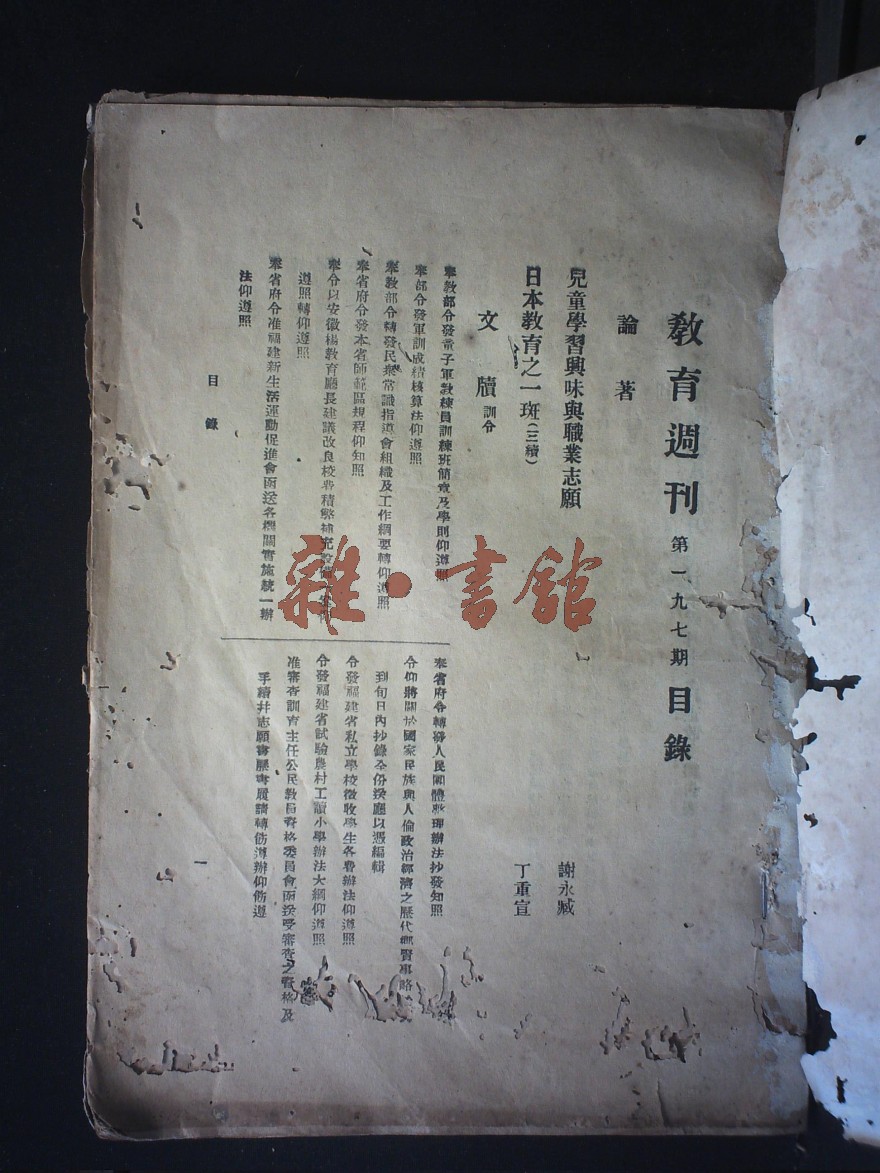 教育週刊 第一九七期目錄
論著
兒童學習興味與職業志願 謝永臧
日本教育之一班(三續) 丁重宣
文牘 訓令
奉教部令發童子軍教練員訓練班簡章及學則仰遵照
奉部令發軍訓成績核算法仰遵照
奉教部令轉發民衆常識指導會組織及工作綱要轉仰遵照
奉省府令發本省師範區規程仰知照
奉令以安徽楊教育廳長建議改良校舍積繁補充設
遵照轉仰遵照
奉省府令准福建新生活運動促進會函送各機關實施統一辦
法仰遵照
奉省府令轉發人民團體整理辦法抄發知照
令仰將關於國家民族與人倫政治經濟之歷代鄉賢事略
到旬日內抄錄全份送廳以憑編輯
令發福建省私立學校徵收學生各費辦法仰遵照
令發福建省試驗農村工讀小學辦法大綱仰遵照
准審查訓育主任公民教員資格委員會函送受審查之資格及
手續幷志願書履 轉飭遵辦仰飭遵
目錄
一
雜·書館